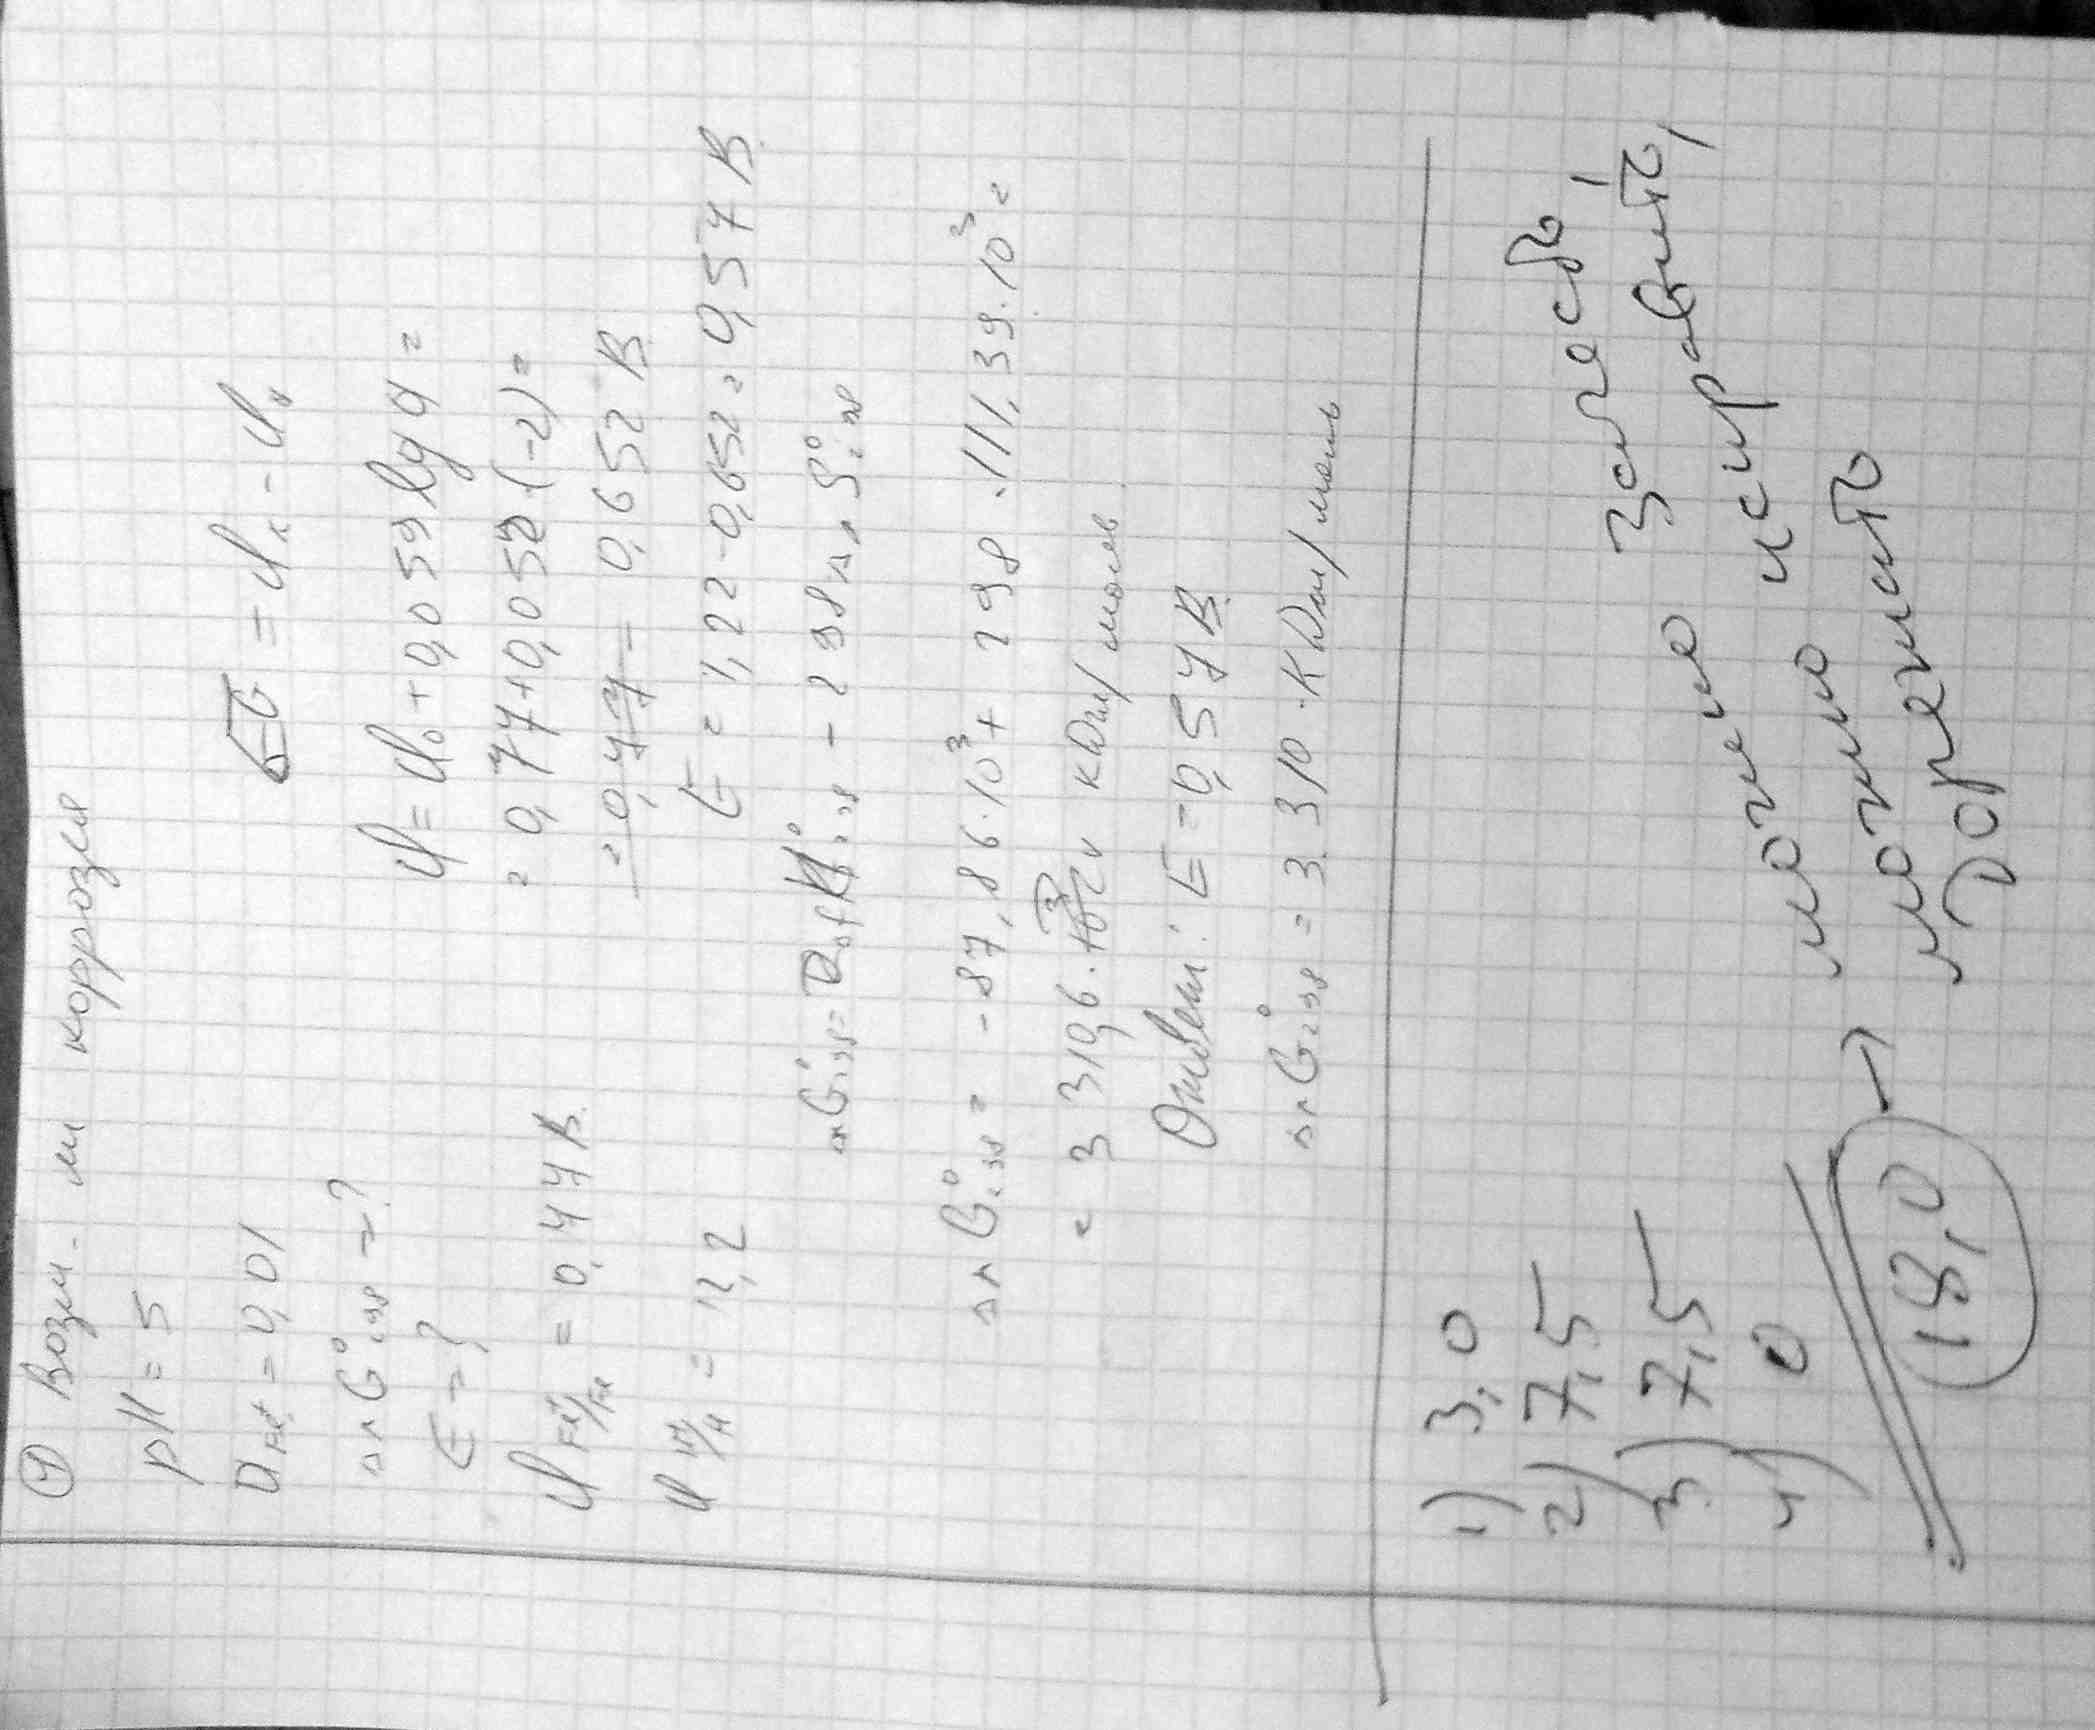 ④ Возм. ли коррозия
pH = 5
a = 0,01
ΔrG°298 - ?
E - ?
φ Fe²⁺/Fe = 0,44 В
φ = 1,22
E = φк - φа
φ = φ₀ + 0,059 lg a =
= 0,77 + 0,059 · (-2) =
= 0,77 - 0,652 В
E = 1,22 - 0,652 = 0,57 В
ΔrG°298 = H°298 - 298 Δr S°298
ΔrG°298 = -87,86 · 10³ + 298 · 111,39 · 10³ =
= 3310,6 · кДж/моль
Ответ: E = 0,57 В
ΔrG°298 = 3310 · кДж/моль
1) 3,0
2) 7,5
3) 7,5
4) 0
18,0 →
можно зачесть,
можно исправить,
можно
дорешить